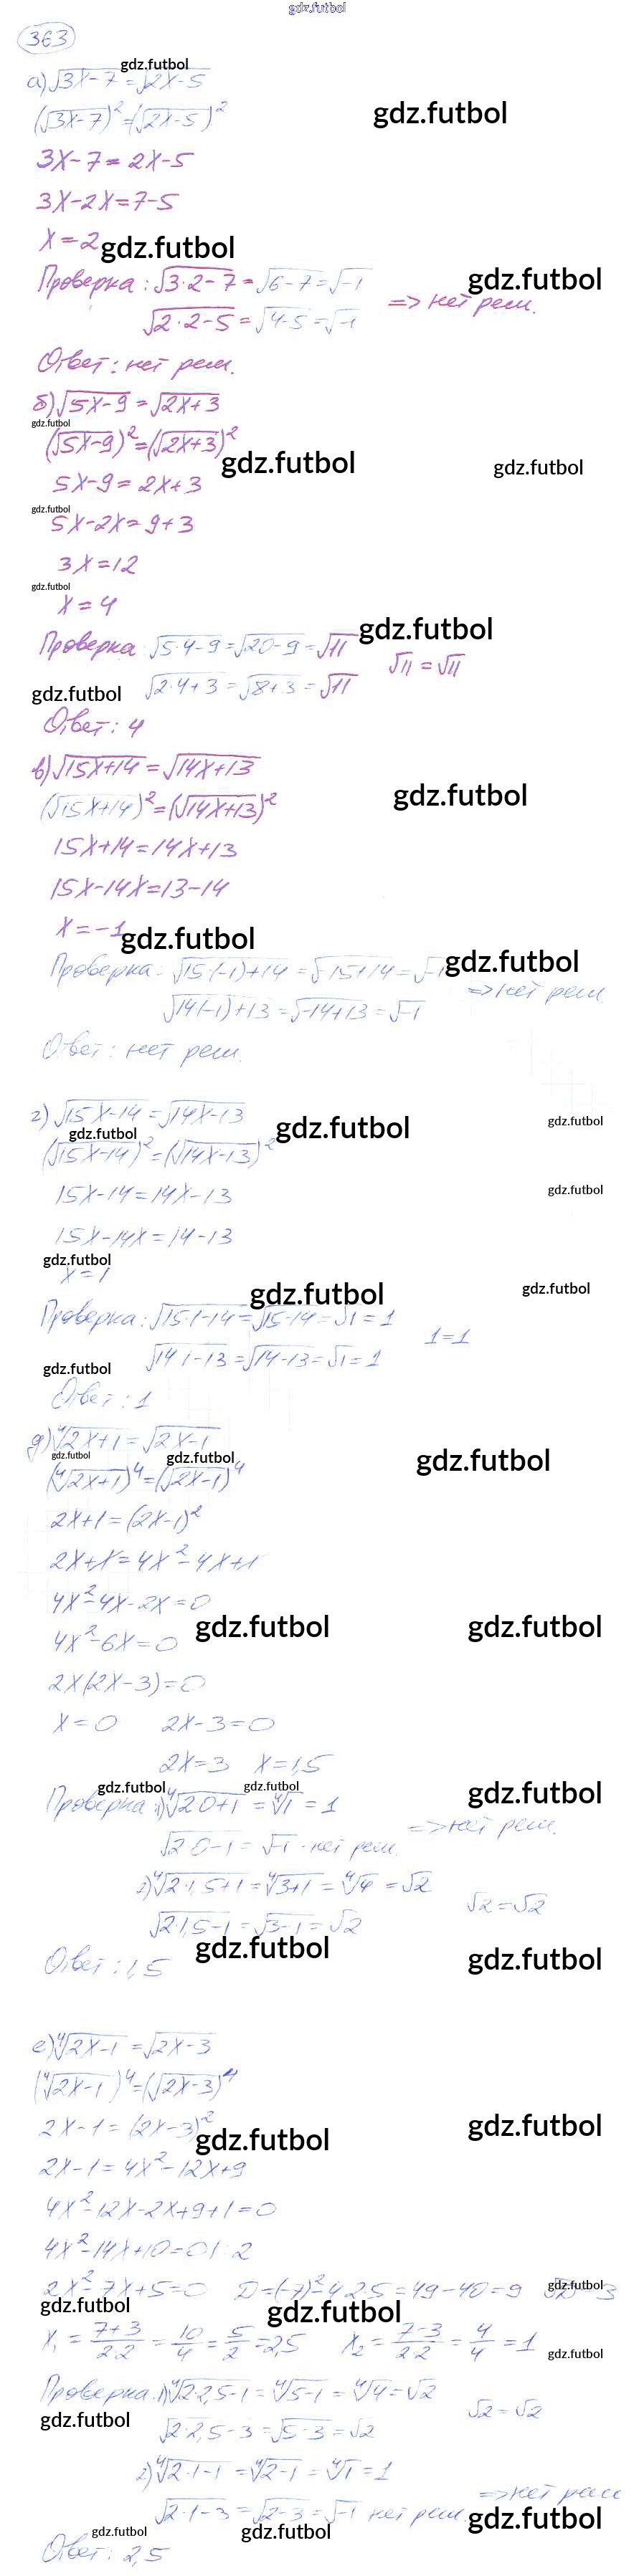 gdz.futbol
363
gdz.futbol
а) √3x-7 = √2x-5
(√3x-7)² = (√2x-5)²
gdz.futbol
3x-7 = 2x-5
3x-2x = 7-5
x = 2
gdz.futbol
Проверка: √3·2-7 = √6-7 = √-1
gdz.futbol
√2·2-5 = √4-5 = √-1 => нет реш.
Ответ: нет реш.
б) √5x-9 = √2x+3
gdz.futbol
(√5x-9)² = (√2x+3)²
gdz.futbol
gdz.futbol
5x-9 = 2x+3
gdz.futbol
5x-2x = 9+3
3x = 12
gdz.futbol
x = 4
gdz.futbol
Проверка: √5·4-9 = √20-9 = √11
√2·4+3 = √8+3 = √11 √11 = √11
gdz.futbol
Ответ: 4
в) √15x+14 = √14x+13
gdz.futbol
(√15x+14)² = (√14x+13)²
15x+14 = 14x+13
15x-14x = 13-14
x = -1
gdz.futbol
Проверка: √15(-1)+14 = √-15+14 = √-1
gdz.futbol
√14(-1)+13 = √-14+13 = √-1 => нет реш.
Ответ: нет реш.
г) √15x-14 = √14x-13
gdz.futbol
gdz.futbol
gdz.futbol
(√15x-14)² = (√14x-13)²
15x-14 = 14x-13
gdz.futbol
15x-14x = 14-13
gdz.futbol
x = 1
gdz.futbol
gdz.futbol
Проверка: √15·1-14 = √15-14 = √1 = 1
√14·1-13 = √14-13 = √1 = 1 1=1
gdz.futbol
Ответ: 1
д) ⁴√2x+1 = √2x-1
gdz.futbol
gdz.futbol
gdz.futbol
(⁴√2x+1)⁴ = (√2x-1)⁴
2x+1 = (2x-1)²
2x+1 = 4x²-4x+1
4x²-4x-2x = 0
gdz.futbol
gdz.futbol
4x²-6x = 0
2x(2x-3) = 0
x = 0 2x-3 = 0
2x = 3 x = 1,5
gdz.futbol
gdz.futbol
gdz.futbol
Проверка: 1) ⁴√2·0+1 = ⁴√1 = 1
√2·0-1 = √-1 - нет реш. => нет реш.
2) ⁴√2·1,5+1 = ⁴√3+1 = ⁴√4 = √2
√2·1,5-1 = √3-1 = √2 √2 = √2
gdz.futbol
gdz.futbol
Ответ: 1,5
е) ⁴√2x-1 = √2x-3
(⁴√2x-1)⁴ = (√2x-3)⁴
2x-1 = (2x-3)²
gdz.futbol
gdz.futbol
2x-1 = 4x²-12x+9
4x²-12x-2x+9+1 = 0
4x²-14x+10 = 0 |:2
2x²-7x+5 = 0 D = (-7)²-4·2·5 = 49-40 = 9 √D = 3
gdz.futbol
gdz.futbol
gdz.futbol
x₁ = 7+3/2·2 = 10/4 = 5/2 = 2,5 x₂ = 7-3/2·2 = 4/4 = 1
gdz.futbol
Проверка: 1) ⁴√2·2,5-1 = ⁴√5-1 = ⁴√4 = √2
gdz.futbol
√2·2,5-3 = √5-3 = √2 √2 = √2
2) ⁴√2·1-1 = ⁴√2-1 = ⁴√1 = 1
√2·1-3 = √2-3 = √-1 нет реш. => нет реш
gdz.futbol
gdz.futbol
gdz.futbol
Ответ: 2,5